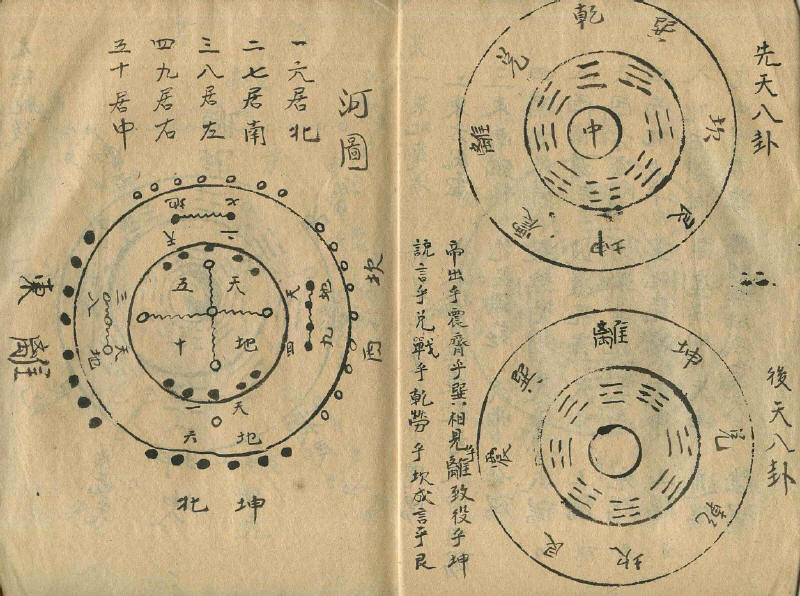 先天八卦
乾
巽
坎
艮
坤
震
離
兌
中
後天八卦
離
坤
兌
乾
坎
艮
震
巽
帝出乎震齊乎巽相見乎離致役乎坤
說言乎兌戰乎乾勞乎坎成言乎艮
河圖
一六居北
二七居南
三八居左
四九居右
五十居中
地七
天二
坎
西
地九
天四
天五
地十
天三
地八
東
離
天一
地六
坤
北